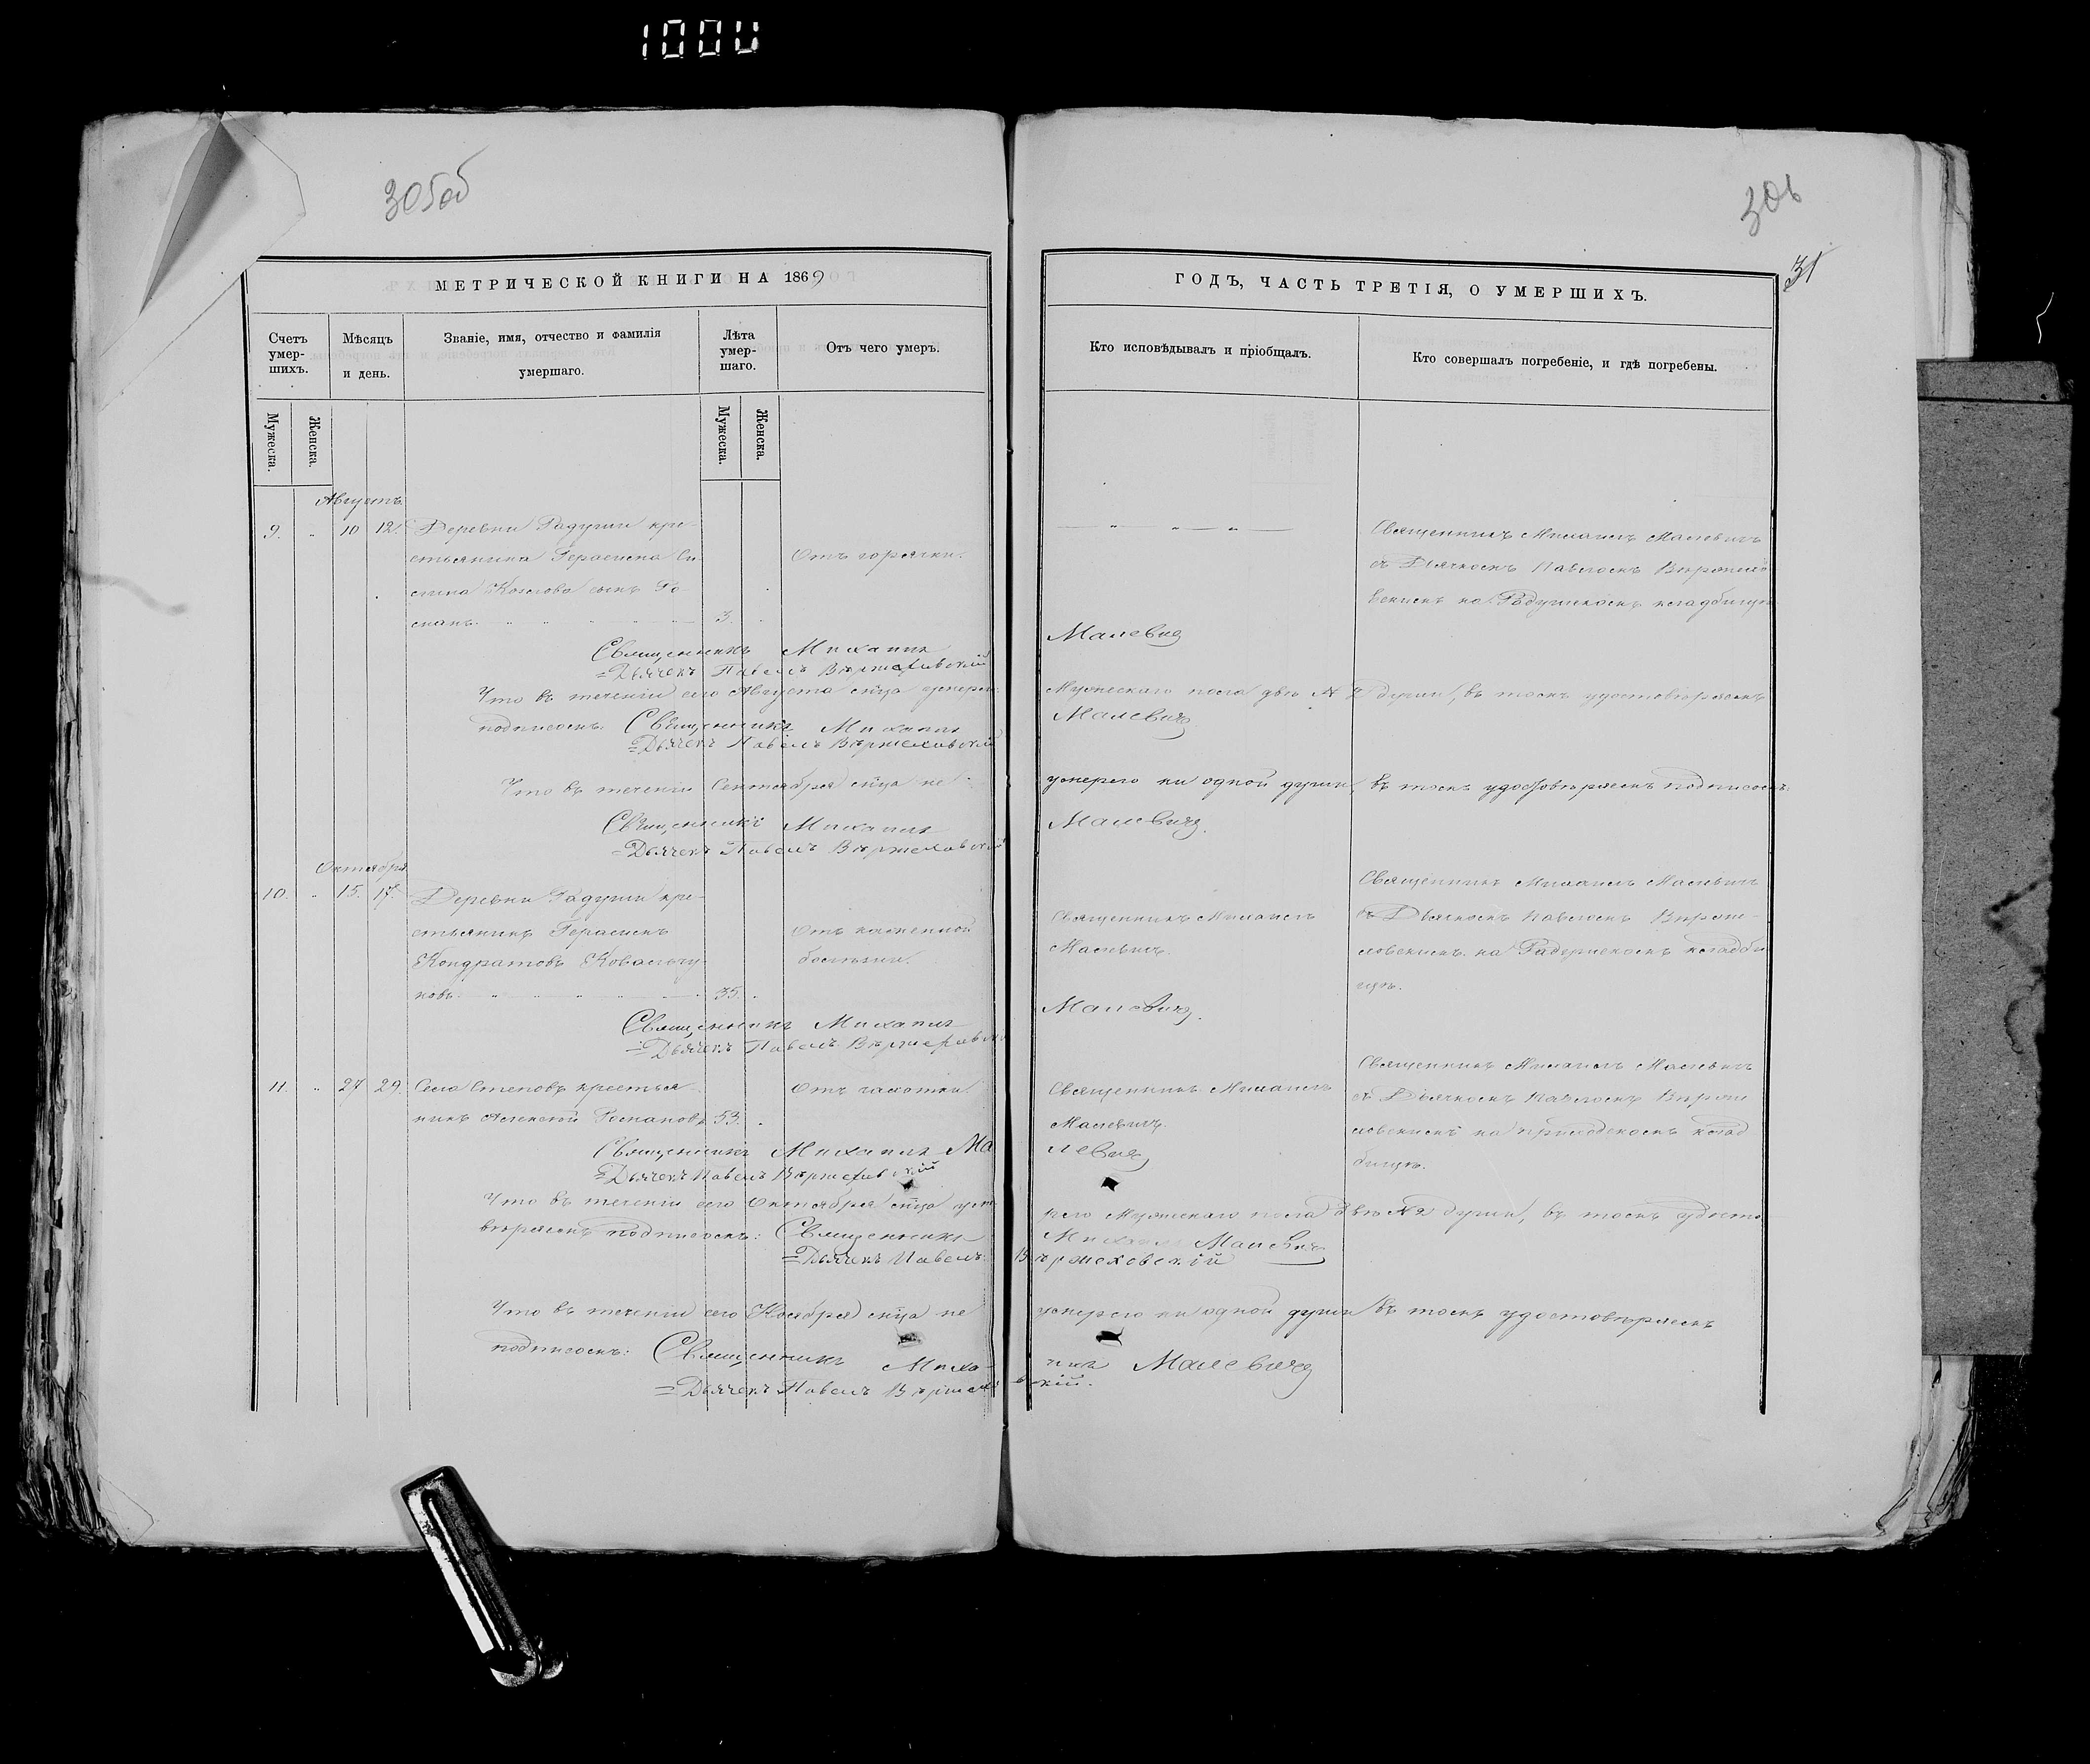 1000
305об
306
31
МЕТРИЧЕСКОЙ КНИГИ НА 1869
Счетъ умер-шихъ.
Мѣсяцъ и день.
Званіе, имя, отчество и фамилія умершаго.
Лѣта умер-шаго.
Отъ чего умеръ.
Мужеска.
Женска.
Мужеска.
Женска.
Августъ
9. " 10 12. Деревни Радуши кре-
стьянина Герасима Си
Отъ горячки.
Козлова сынъ Ро-
манъ 3.
Священникъ Михаилъ
Дьячекъ Павелъ
Что въ теченіи сего Августа мѣца умерло
подписомъ: Священникъ Михаилъ
Дьячекъ Павелъ
Что въ теченіи Сентября мѣца не
Священникъ Михаилъ
Дьячекъ Павелъ
Октября
10. " 15. 17. Деревни Радуши кре-
стьянинъ Герасимъ
Отъ
Кондратовъ Ковальчу
болѣзни.
ковъ 35.
Священникъ Михаилъ
Дьячекъ Павелъ
11. " 27 29. Села Степовъ крестья
Отъ чахотки.
нинъ Алексей Романовъ 53.
Священникъ Михаилъ Ма
Дьячекъ Павелъ
Что въ теченіи сего Октября мѣца уме
вѣряемъ подписомъ: Священникъ
Дьячекъ Павелъ
Что въ теченіи сего Ноября мѣца не
подписомъ: Священникъ Миха-
Дьячекъ Павелъ
ГОДЪ, ЧАСТЬ ТРЕТІЯ, О УМЕРШИХЪ.
Кто исповѣдывалъ и пріобщалъ.
Кто совершалъ погребеніе, и гдѣ погребены.
Священникъ Михаилъ Малевичъ
съ Дьячкомъ Павломъ
на Радушскомъ кладбищѣ
Малевичъ
Мужескаго пола двѣ № 2 души, въ томъ удостовѣряемъ
Малевичъ
умерло ни одной души, въ томъ удостовѣряемъ подписомъ.
Малевичъ.
Священникъ Михаилъ Малевичъ
Священникъ Михаилъ
съ Дьячкомъ Павломъ
Малевичъ.
на Радушскомъ кладби
щѣ.
Малевичъ.
Священникъ Михаилъ Малевичъ
Священникъ Михаилъ
съ Дьячкомъ Павломъ
Малевичъ.
на приходскомъ клад
левичъ
бищѣ.
рло Мужескаго пола двѣ № 2 души, въ томъ удосто
Михаилъ Малевичъ
умерло ни одной души въ томъ удостовѣряемъ
илъ Малевичъ